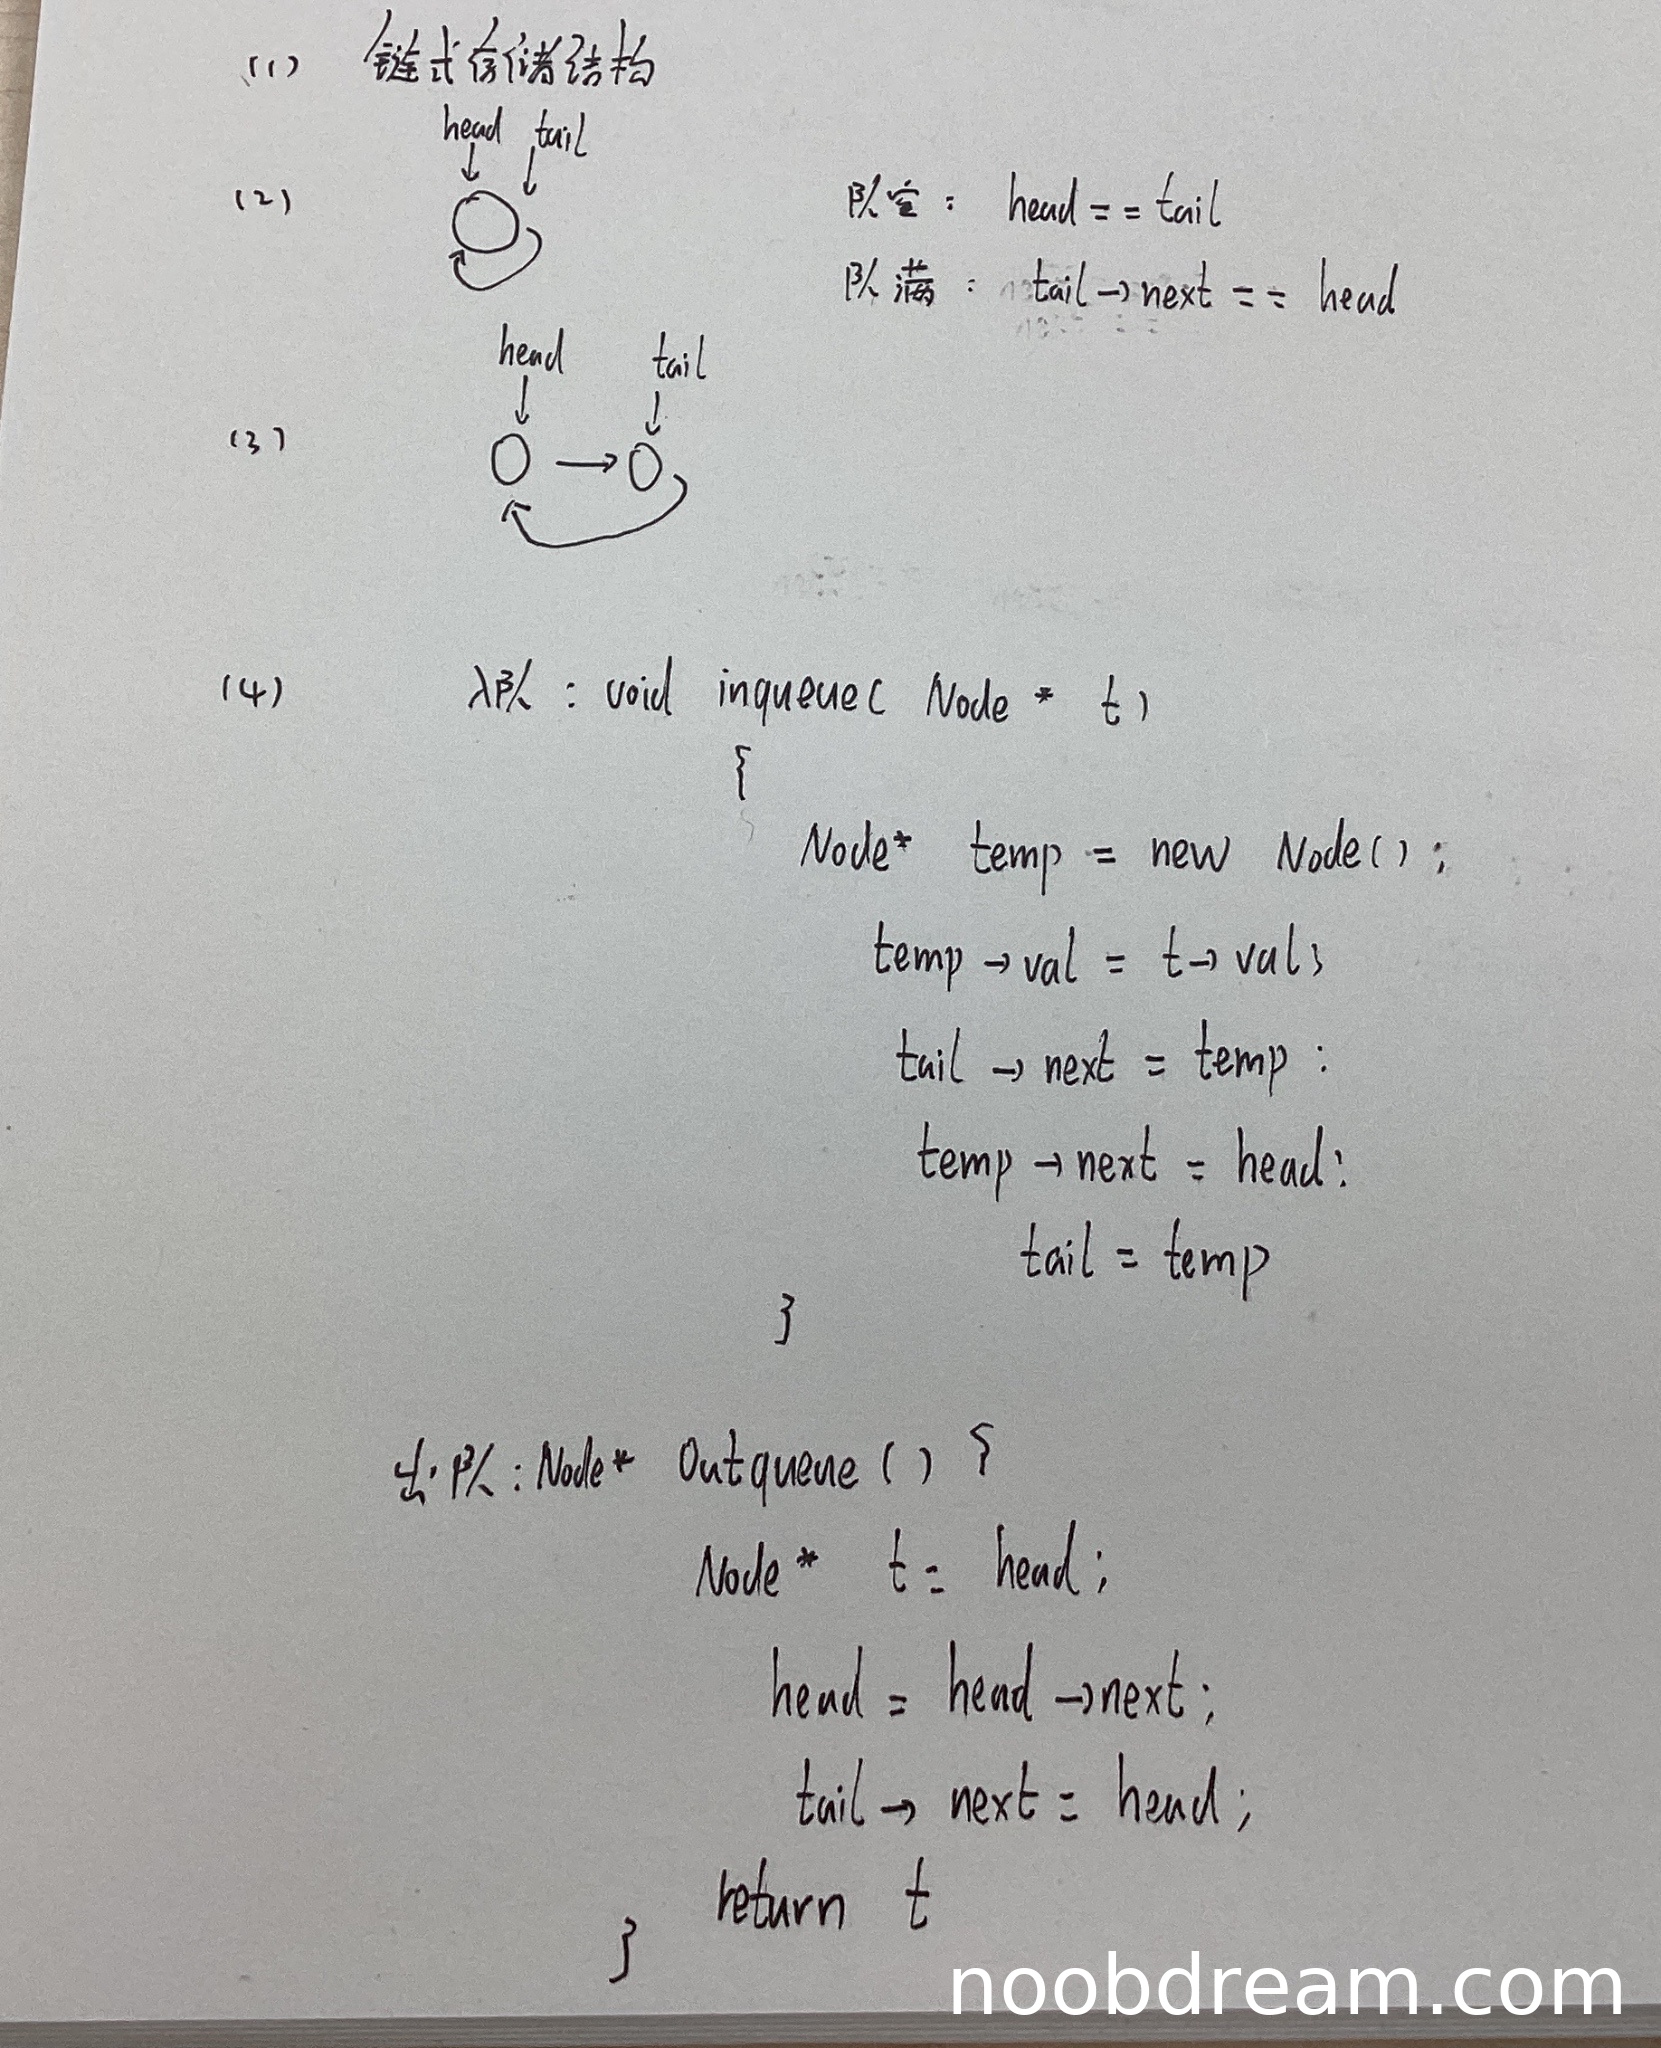 (1) 链式存储结构
head tail
(2)
队空: head == tail
队满: tail→next == head
head tail
(3)
(4) 入队: void inqueue( Node * t)
{
Node* temp = new Node();
temp→val = t→val;
tail→next = temp:
temp→next = head:
tail = temp
}
出队: Node* Outqueue() {
Node* t = head;
head = head→next;
tail→next = head;
return t
}
noobdream.com